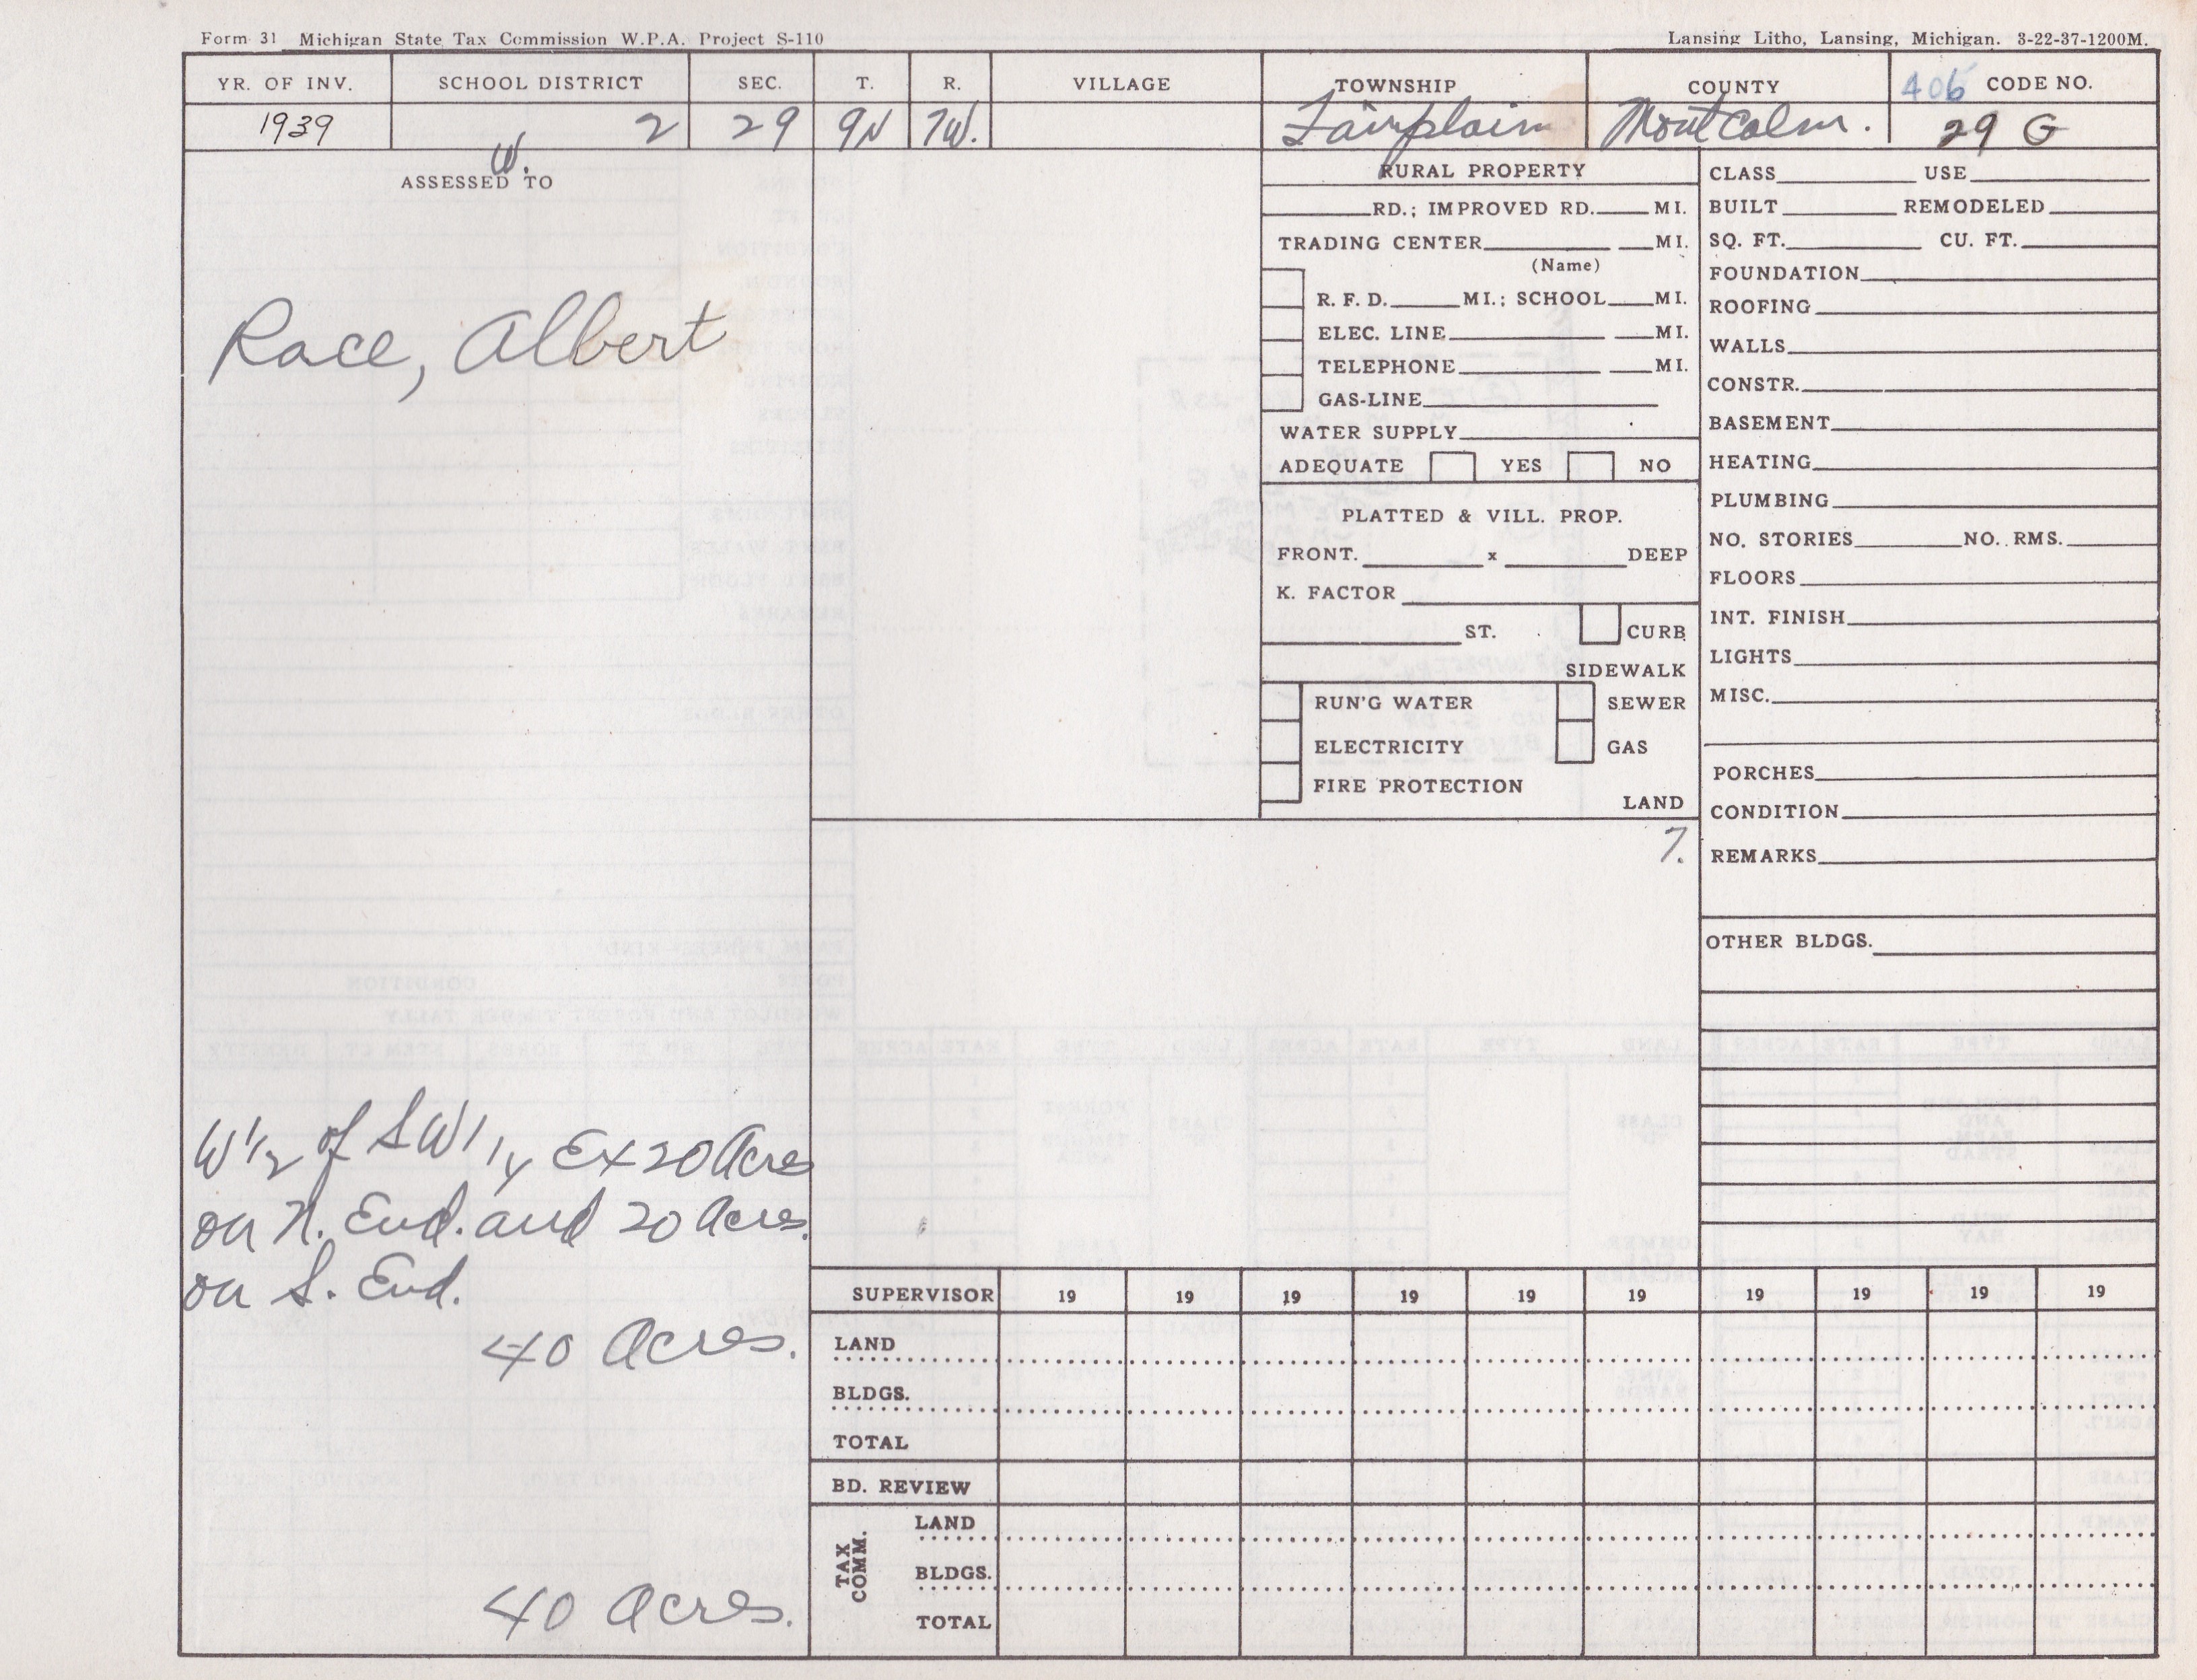 Form 31 Michigan State Tax Commission W.P.A. Project S-110
Lansing Litho, Lansing, Michigan. 3-22-37-1200M.
YR. OF INV. SCHOOL DISTRICT SEC. T. R. VILLAGE TOWNSHIP COUNTY 406 CODE NO.
1939 2 29 9N 7W. Fairplain Montcalm. 29 G
W.
ASSESSED TO
Race, Albert
W 1/2 of SW 1/4 Ex 20 Acres
on N. End. and 20 Acres.
on S. End.
40 Acres.
40 Acres.
RURAL PROPERTY
RD.; IMPROVED RD. MI.
TRADING CENTER MI.
(Name)
R. F. D. MI.; SCHOOL MI.
ELEC. LINE MI.
TELEPHONE MI.
GAS-LINE
WATER SUPPLY
ADEQUATE YES NO
PLATTED & VILL. PROP.
FRONT. x DEEP
K. FACTOR
ST. CURB
SIDEWALK
RUN'G WATER SEWER
ELECTRICITY GAS
FIRE PROTECTION
LAND
7.
CLASS USE
BUILT REMODELED
SQ. FT. CU. FT.
FOUNDATION
ROOFING
WALLS
CONSTR.
BASEMENT
HEATING
PLUMBING
NO. STORIES NO. RMS.
FLOORS
INT. FINISH
LIGHTS
MISC.
PORCHES
CONDITION
REMARKS
OTHER BLDGS.
SUPERVISOR 19 19 19 19 19 19 19 19 19 19
LAND
BLDGS.
TOTAL
BD. REVIEW
TAX COMM.
LAND
BLDGS.
TOTAL